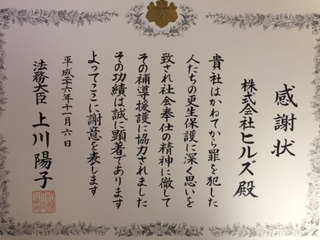 感謝状
株式会社ヒルズ殿
貴社はかねてから罪を犯した
人たちの更生保護に深く思いを
致され社会奉仕の精神に徹して
その補導援護に協力されました
その功績は誠に顕著であります
よってここに謝意を表します
平成二十六年十一月六日
法務大臣 上川陽子